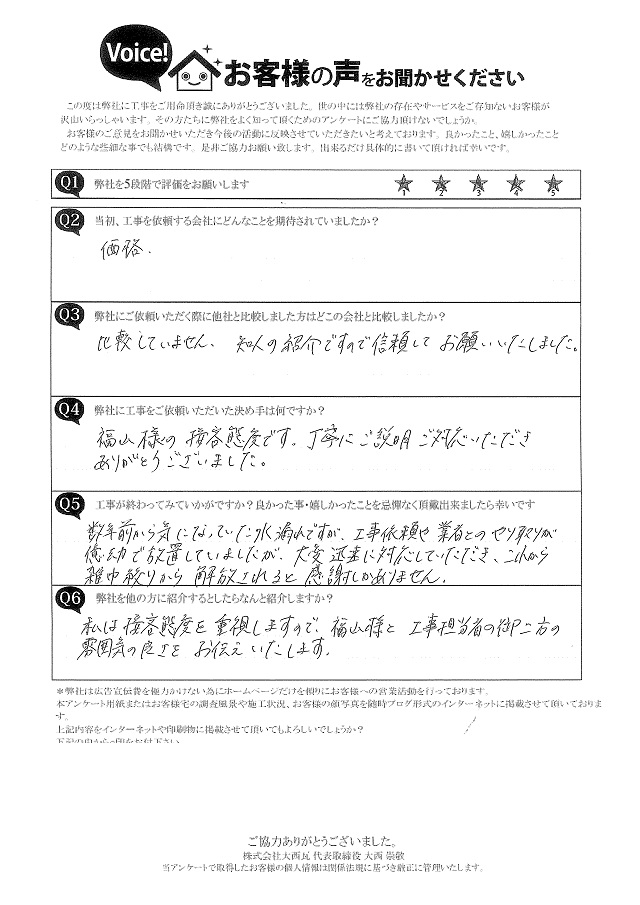 Voice!
お客様の声をお聞かせください
この度は弊社に工事をご用命頂き誠にありがとうございました。世の中には弊社の存在やサービスをご存知ないお客様が
沢山いらっしゃいます。その方たちに弊社をよく知って頂くためのアンケートにご協力頂けないでしょうか。
お客様のご意見をお聞かせいただき今後の活動に反映させていただきたいと考えております。良かったこと、嬉しかったこと
どのような些細な事でも結構です。是非ご協力お願い致します。出来るだけ具体的に書いて頂ければ幸いです。
Q1 弊社を5段階で評価をお願いします
1 2 3 4 5
Q2 当初、工事を依頼する会社にどんなことを期待されていましたか？
価格.
Q3 弊社にご依頼いただく際に他社と比較しました方はどこの会社と比較しましたか？
比較していません、知人の紹介ですので信頼してお願いいたしました。
Q4 弊社に工事をご依頼いただいた決め手は何ですか？
福山様の接客態度です。丁寧にご説明ご対応いただき
ありがとうございました。
Q5 工事が終わってみていかがですか？良かった事・嬉しかったことを忌憚なく頂戴出来ましたら幸いです
数年前から気になっていた水漏れですが、工事依頼や業者とのやり取りが
億劫で放置していましたが、大変迅速に対応していただき、これから
雑巾絞りから解放されると感謝しかありません.
Q6 弊社を他の方に紹介するとしたらなんと紹介しますか？
私は接客態度を重視しますので、福山様と工事担当者の御二方の
雰囲気の良さをお伝えいたします.
＊弊社は広告宣伝費を極力かけない為にホームページだけを頼りにお客様への営業活動を行っております。
本アンケート用紙またはお客様宅の調査風景や施工状況、お客様の顔写真を随時ブログ形式のインターネットに掲載させて頂いておりま
す。
上記内容をインターネットや印刷物に掲載させて頂いてもよろしいでしょうか？
ご協力ありがとうございました。
株式会社大西瓦 代表取締役 大西 崇敬
当アンケートで取得したお客様の個人情報は関係法規に基づき厳正に管理いたします。